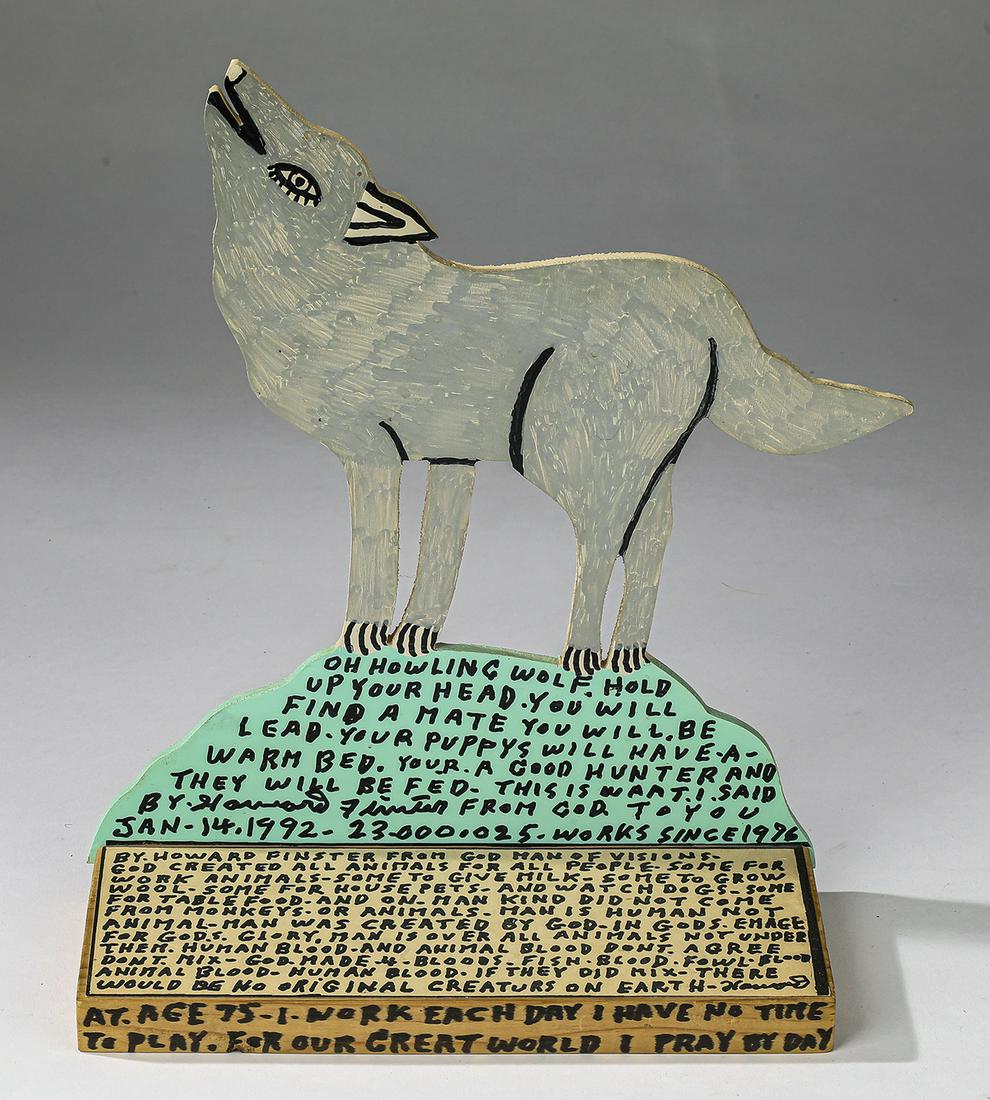 OH HOWLING WOLF. HOLD
UP YOUR HEAD. YOU WILL
FIND A MATE YOU WILL, BE
LEAD. YOUR PUPPYS WILL HAVE-A-
WARM BED. YOUR. A GOOD HUNTER AND
THEY WILL BE FED- THIS IS WAAT. I SAID
BY. Howard Finster FROM GOD TO YOU
JAN-14.1992- 23.000.025. WORKS SINCE 1976
BY. HOWARD FINSTER FROM GOD MAN OF VISIONS-
GOD CREATED ALL ANIMALS FOR ALL PEOPLE-SOME FOR
WORK ANIMALS-SOME TO GIVE MILK-SOME TO GROW
WOOL-SOME FOR HOUSE PETS-AND WATCH DOGS-SOME
FOR TABLE FOOD-AND ON-MAN KIND DID NOT COME
FROM MONKEYS-OR ANIMALS-MAN IS HUMAN NOT
ANIMAL-MAN WAS CREATED BY GOD-IN GODS. EMAGE
FOR GODS. GLORY, MAN IS OVER ALL ANIMALS NOT UNDER
THEM. HUMAN BLOOD-AND ANIMAL BLOOD DONT AGREE
DONT. MIX- GOD MADE 4. BLOODS. FISH. BLOOD. FOWL-BLOOD
ANIMAL BLOOD- HUMAN BLOOD. IF THEY DID MIX-THERE
WOULD BE NO ORIGINAL CREATURS ON EARTH-Howard
AT. AGE 75-I-WORK EACH DAY I HAVE NO TIME
TO PLAY. FOR OUR GREAT WORLD I PRAY BY DAY